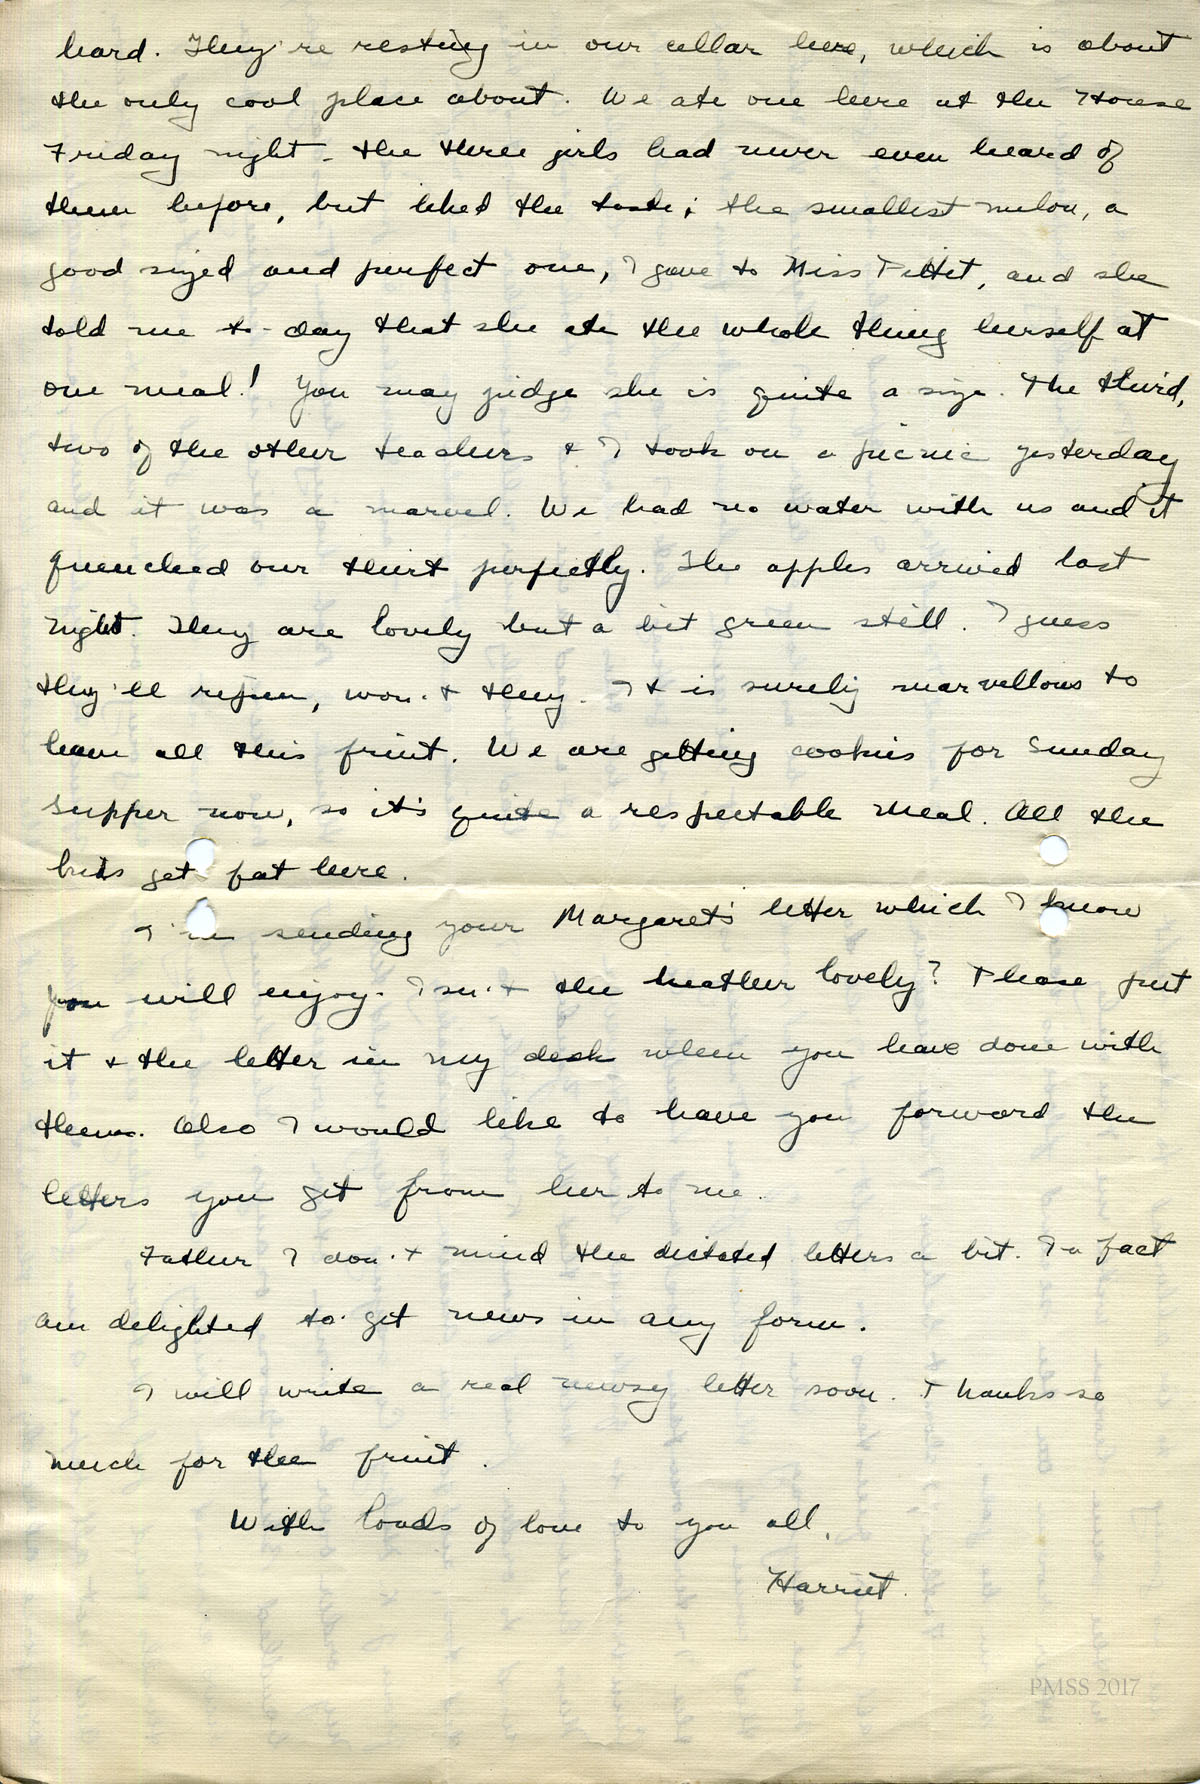 hard. They're resting in our cellar here, which is about
the only cool place about. We ate one here at the House
Friday night - the three girls had never even heard of
them before, but liked the taste; the smallest melon, a
good sized and perfect one, I gave to Miss Pettit, and she
told me to-day that she ate the whole thing herself at
one meal! You may judge she is quite a size. The third,
two of the other teachers & I took on a picnic yesterday
and it was a marvel. We had no water with us and it
quenched our thirst perfectly. The apples arrived last
night. They are lovely but a bit green still. I guess
they'll ripen, won't they. It is surely marvellous to
have all this fruit. We are getting cookies for Sunday
supper now, so it's quite a respectable meal. All the
kids get fat here.
I'm sending your Margaret's letter which I know
you will enjoy. Isn't the heather lovely? Please put
it & the letter in my desk when you have done with
them. Also I would like to have you forward the
letters you get from her to me.
Father I don't mind the dictated letters a bit. In fact
am delighted to get news in any form.
I will write a real newsy letter soon. Thanks so
much for the fruit.
With loads of love to you all,
Harriet.
PMSS 2017